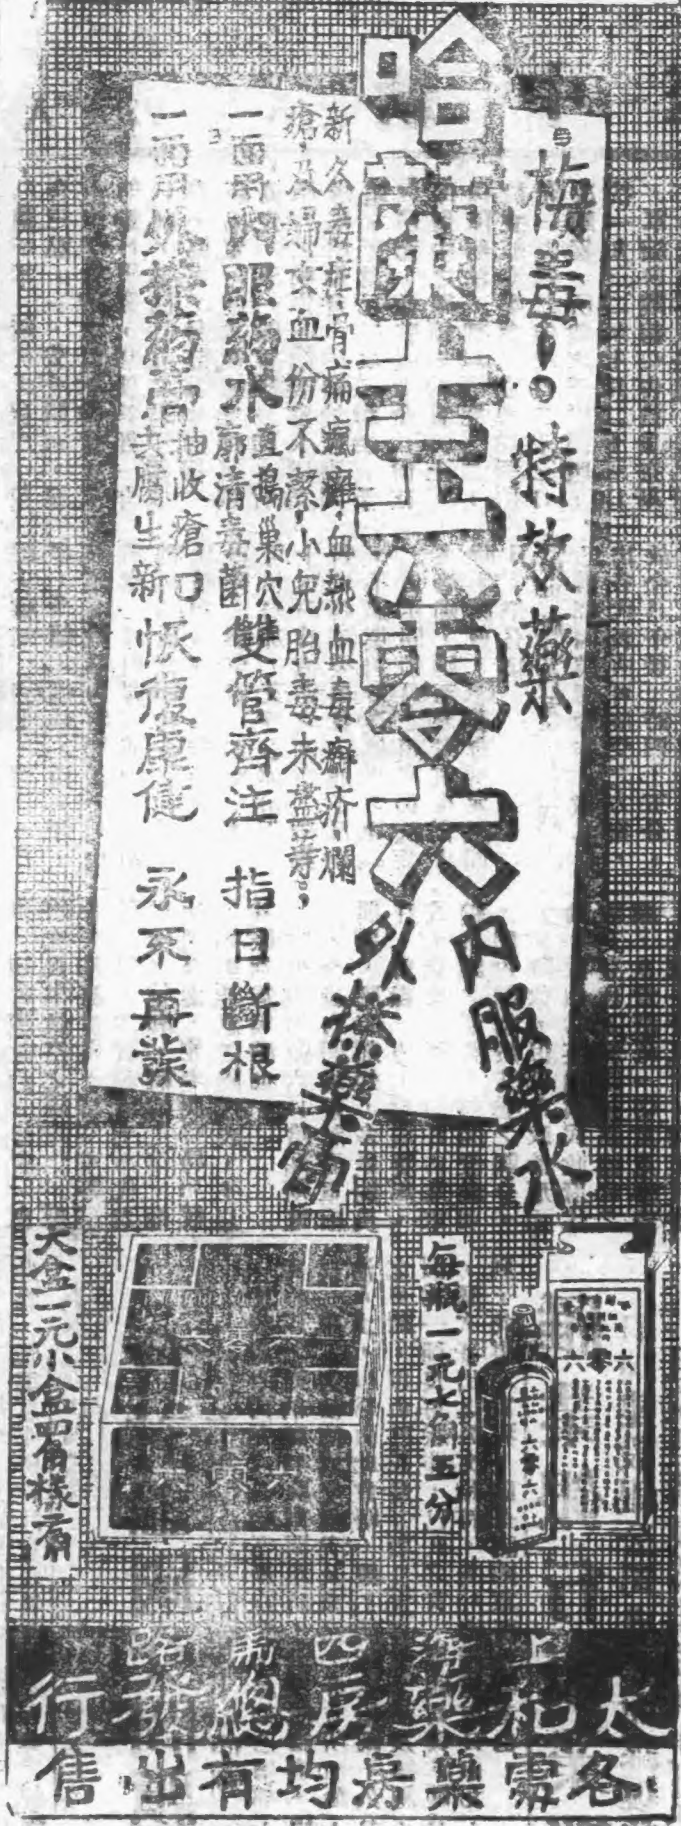 梅毒・特效藥
哈蘭士六零六
內服藥水
外搽藥膏
新久毒症、骨痛瘋癱、血熱血毒、癬疥、爛
瘡、及婦女血份不潔、小兒胎毒未盡等，
一面用內服葯水直搗巢穴
廓清毒菌雙管齊注 指日斷根
一面用外搽葯膏抽收瘡口
去腐生新恢復康健 永不再發
每瓶一元七角五分
六零六
六零六
大盒二元小盒四角
上海四馬路
太和藥房總發行
各處藥房均有出售